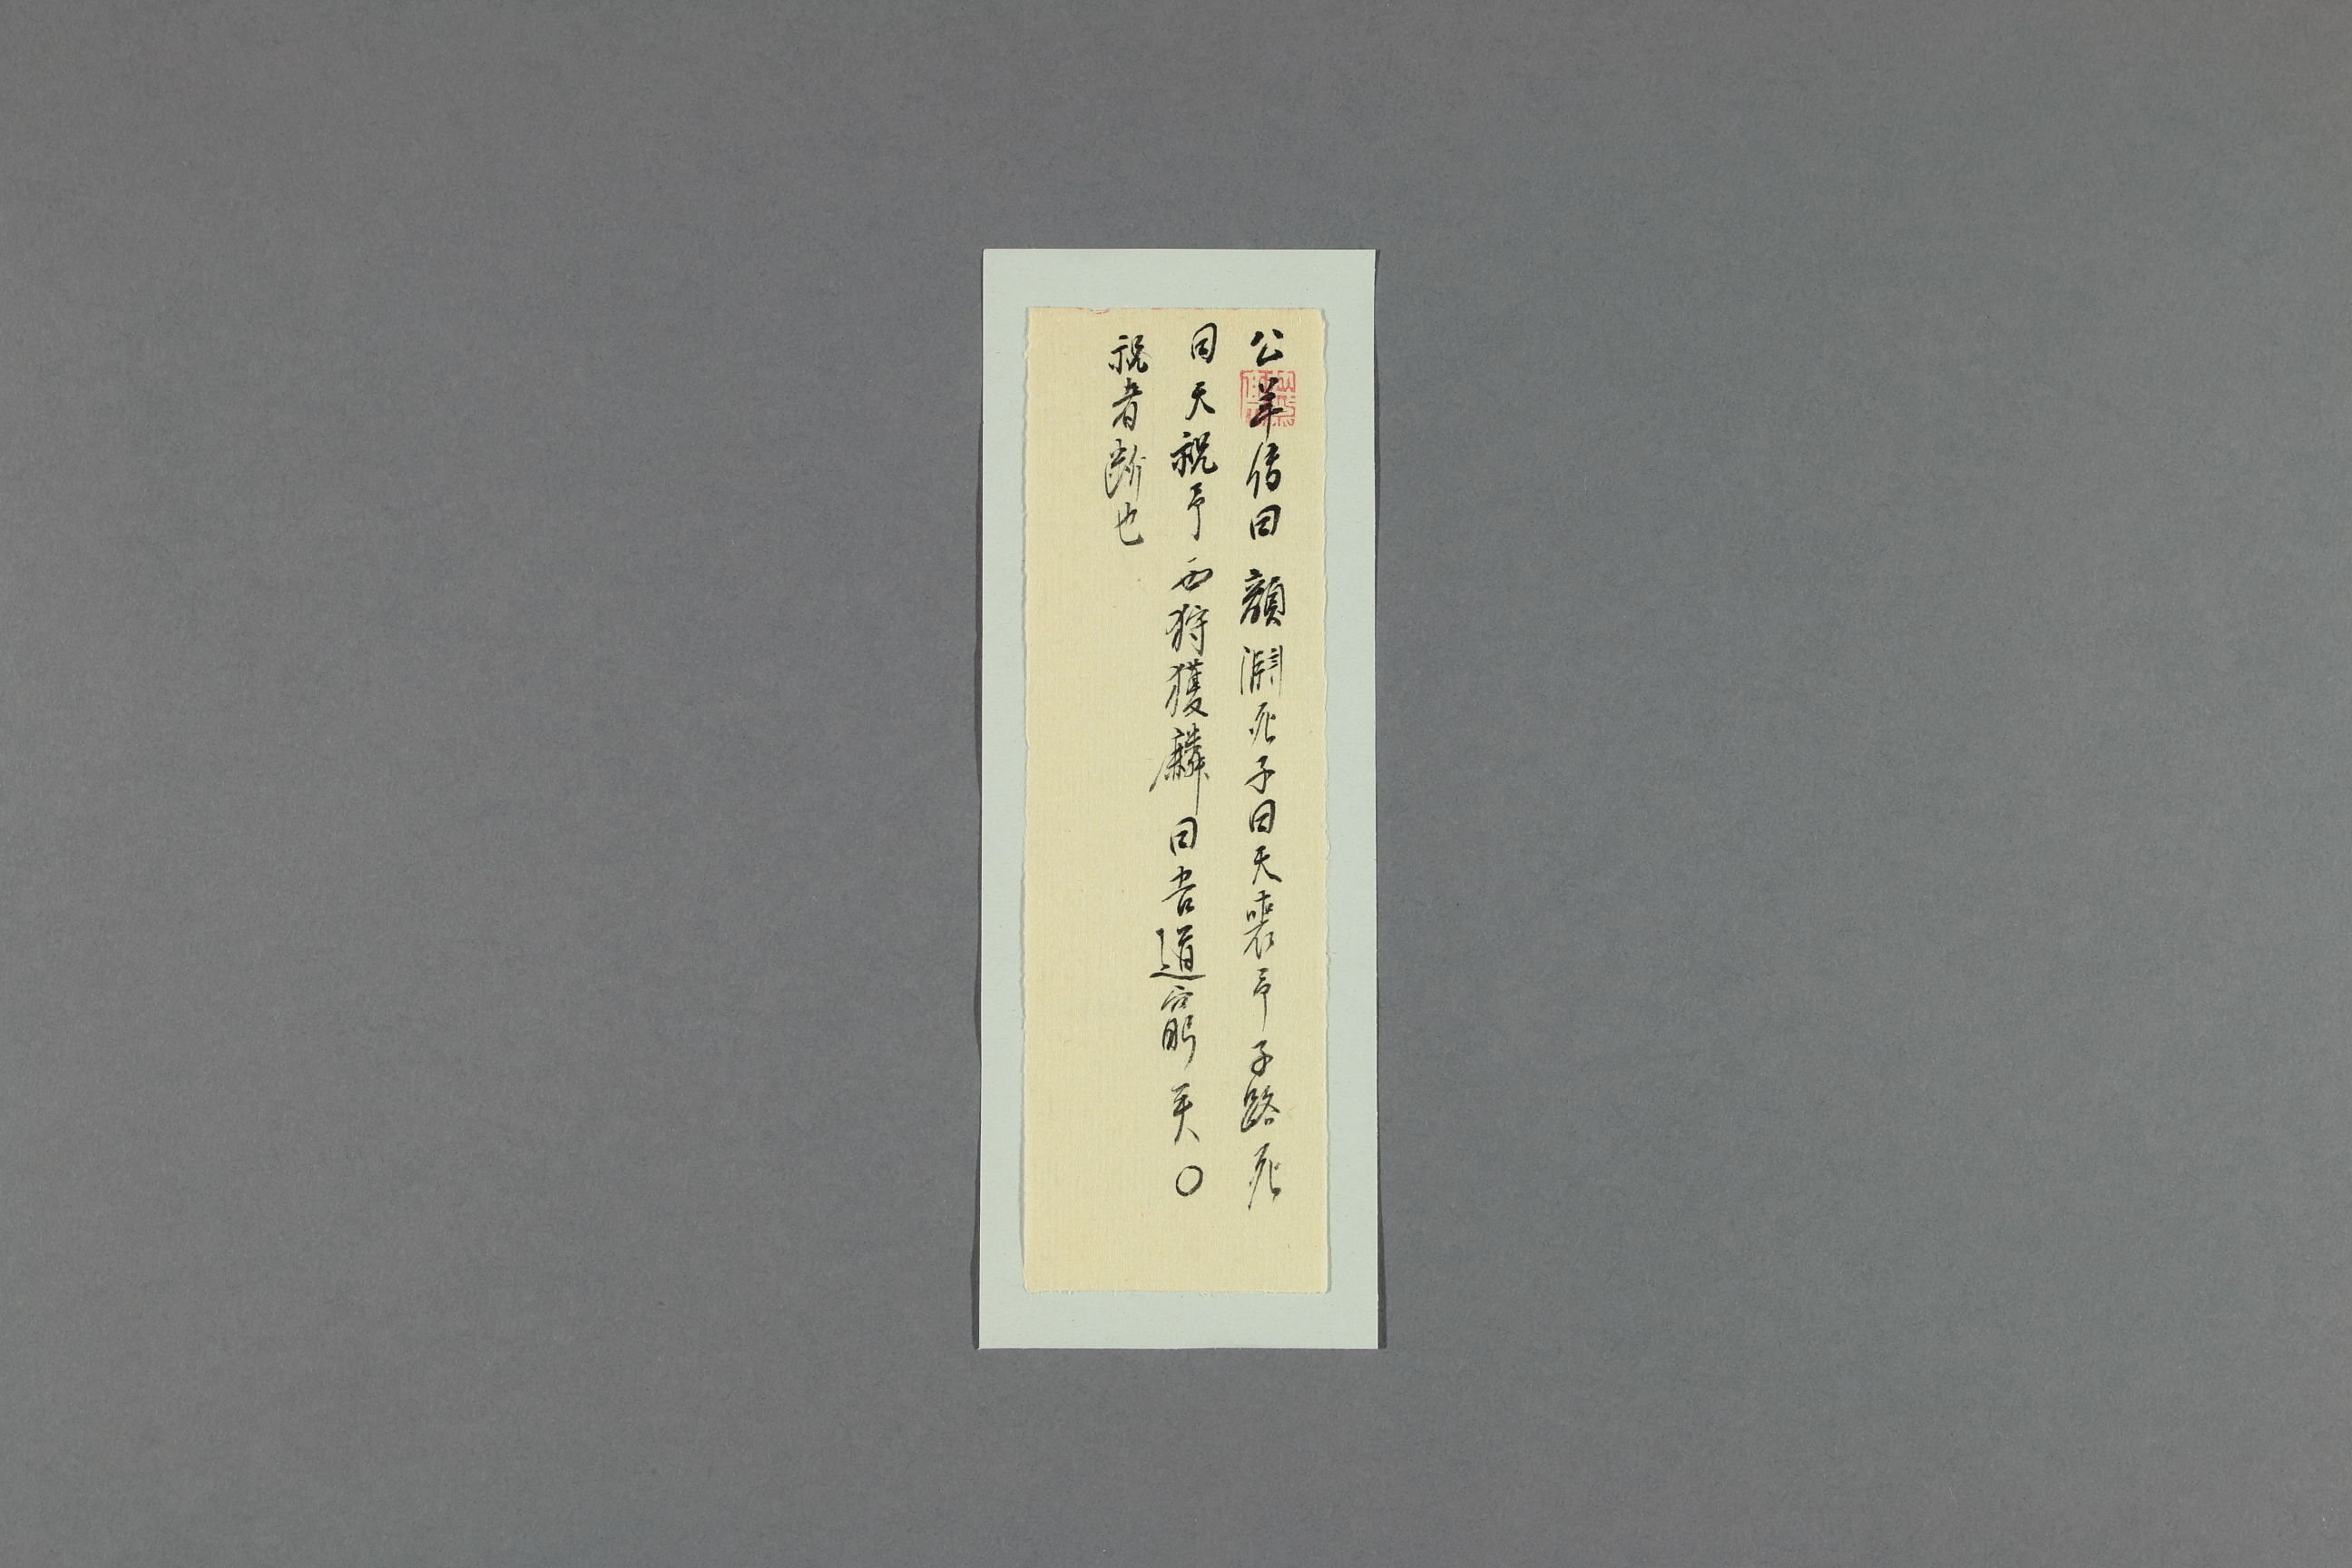 公羊传曰顏淵死子曰天喪予子路死
曰天祝予西狩獲麟曰吾道窮矣〇
祝者断也